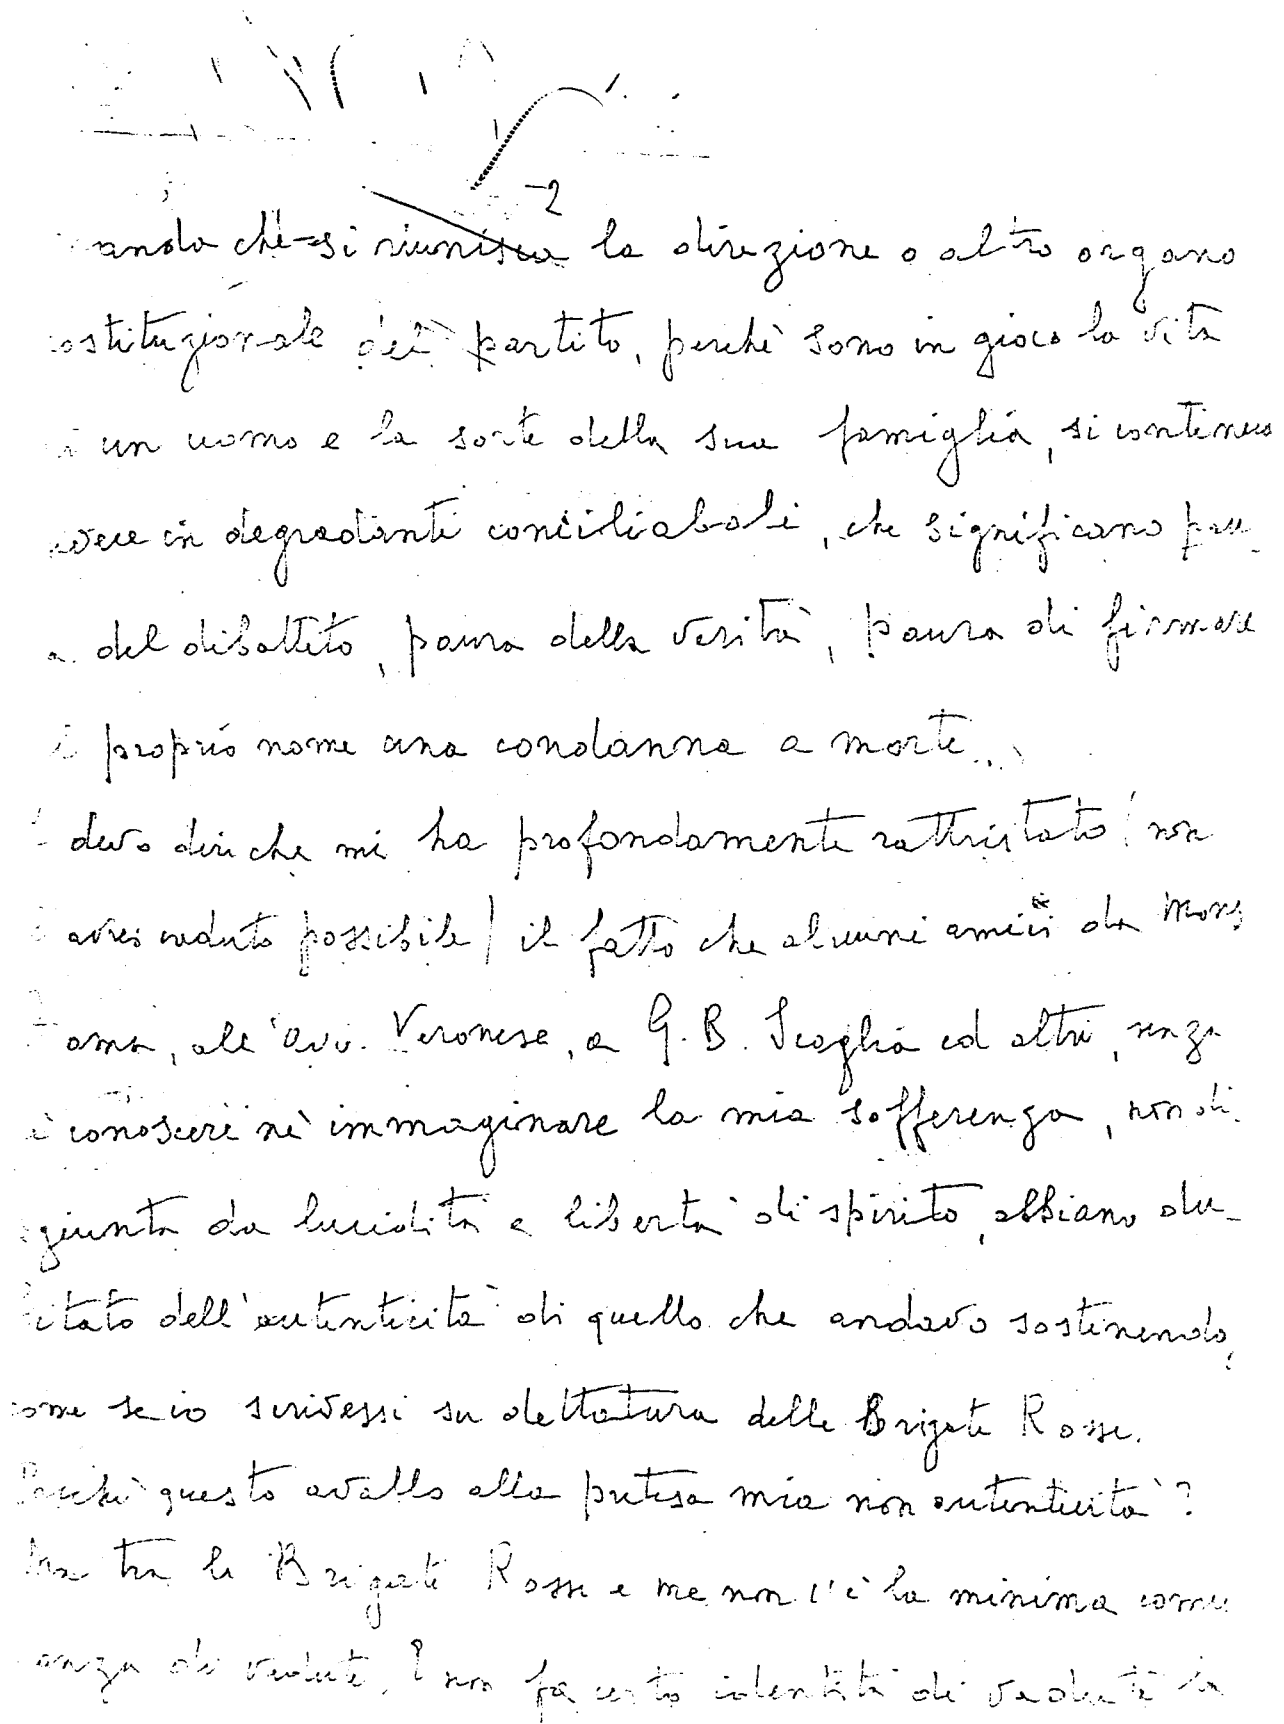 -2
ando che si riunisca la direzione o altro organo
ostituzionale del partito, perchè sono in gioco la vita
i un uomo e la sorte della sua famiglia, si continua
vece in degradanti conciliaboli, che significano pau-
a del dibattito, paura della verità, paura di firmare
proprio nome una condanna a morte...
devo dire che mi ha profondamente rattristato (non
avrei creduto possibile) il fatto che alcuni amici da Mons
ama, all'avv. Veronese, a G.B. Scaglia ed altri, senza
conoscere nè immaginare la mia sofferenza, non di
giunta da lucidità e libertà di spirito, abbiano du-
bitato dell'autenticità di quello che andavo sostenendo,
ome se io scrivessi su dettatura delle Brigate Rosse.
Perchè questo avallo alla pretesa mia non autenticità?
Ma tra le Brigate Rosse e me non c'è la minima comu
anza di vedute. E non fa certo identità di vedute la